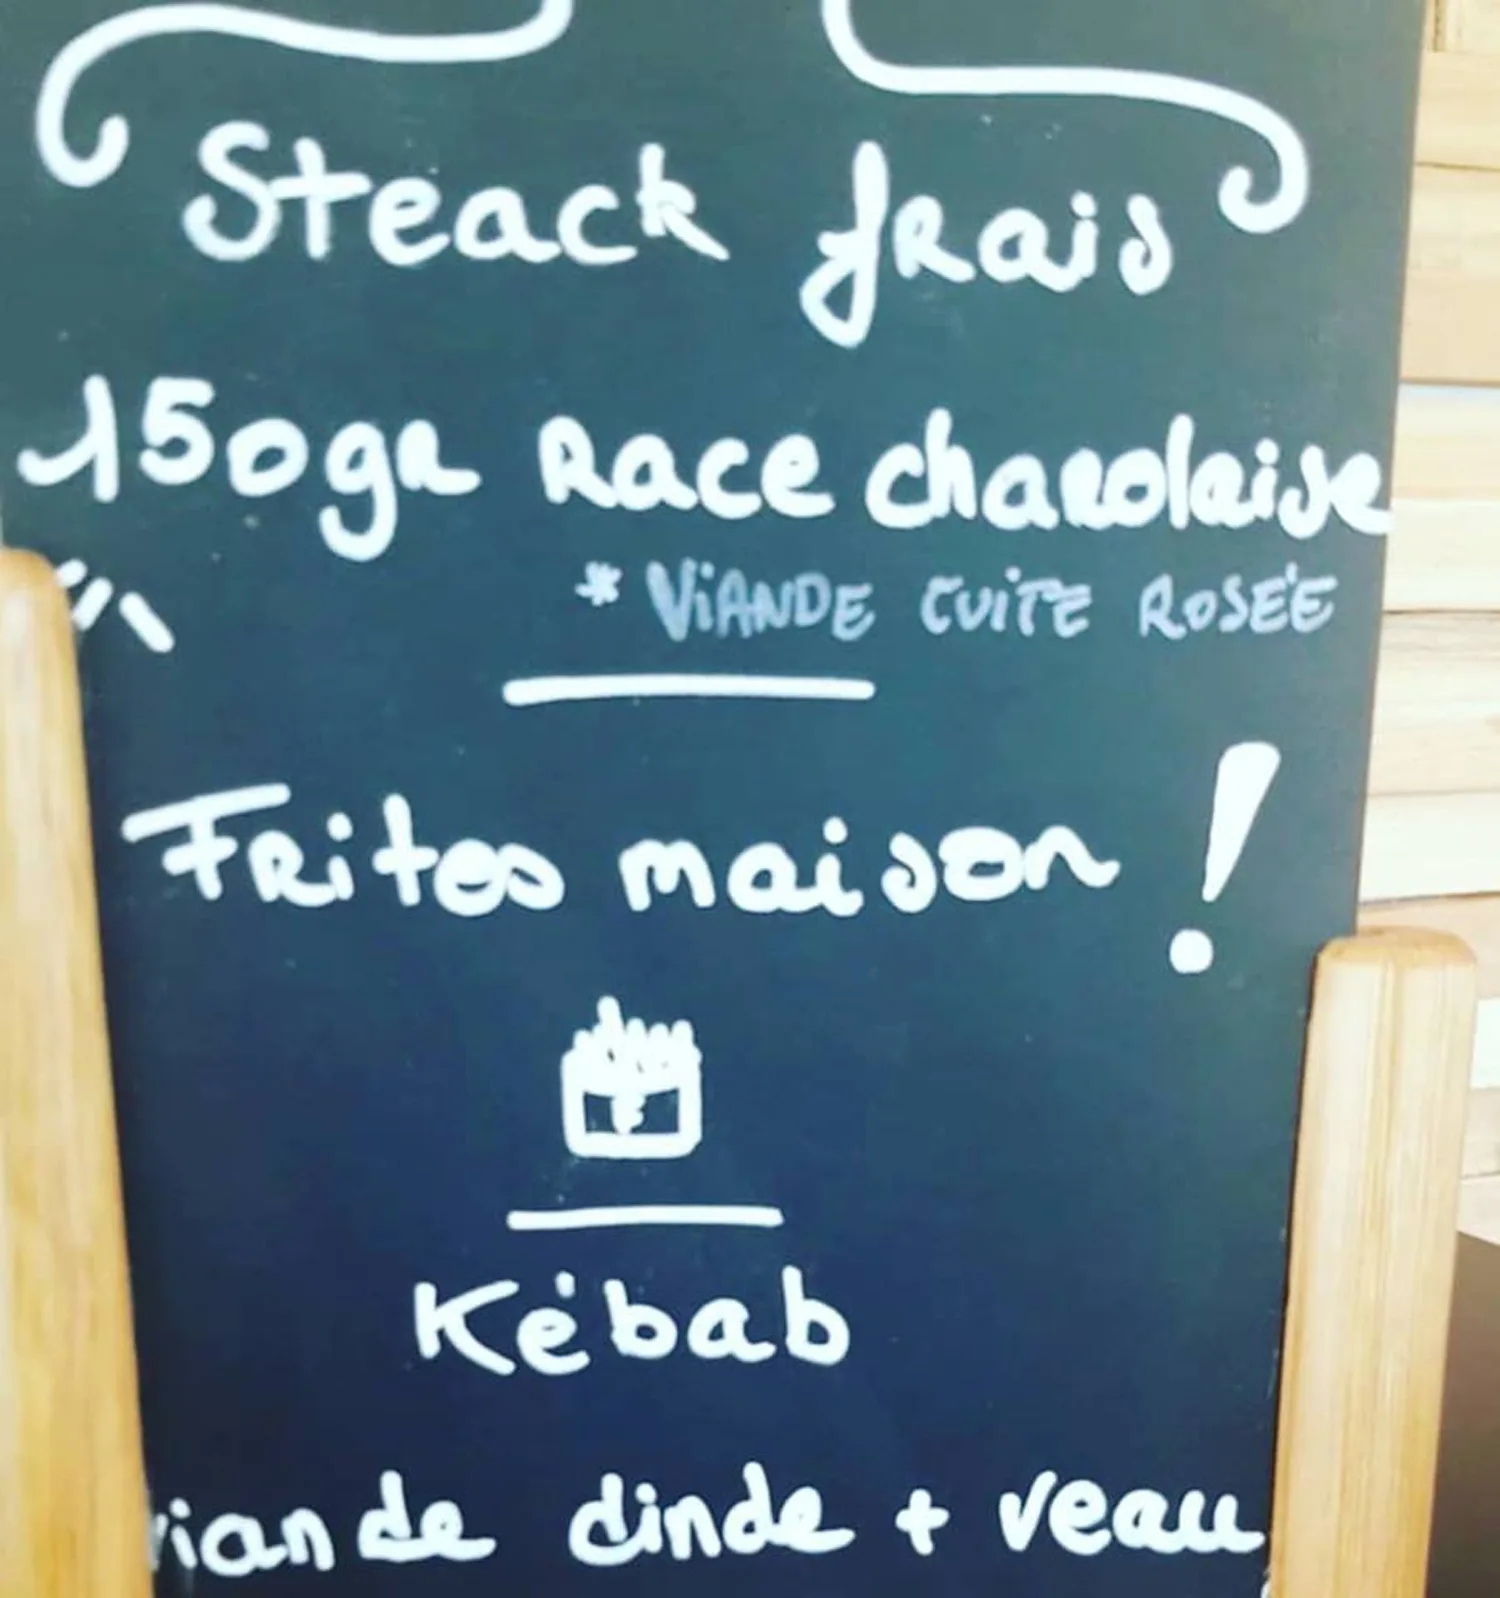 Steack frais
150gr Race charolaise
* VIANDE CUITE ROSÉE
Frites maison !
Kébab
viande dinde + veau